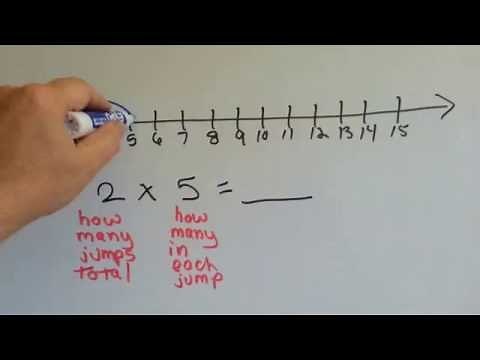 5 6 7 8 9 10 11 12 13 14 15
2 x 5 = ____
how how
many many
jumps in
total each
jump